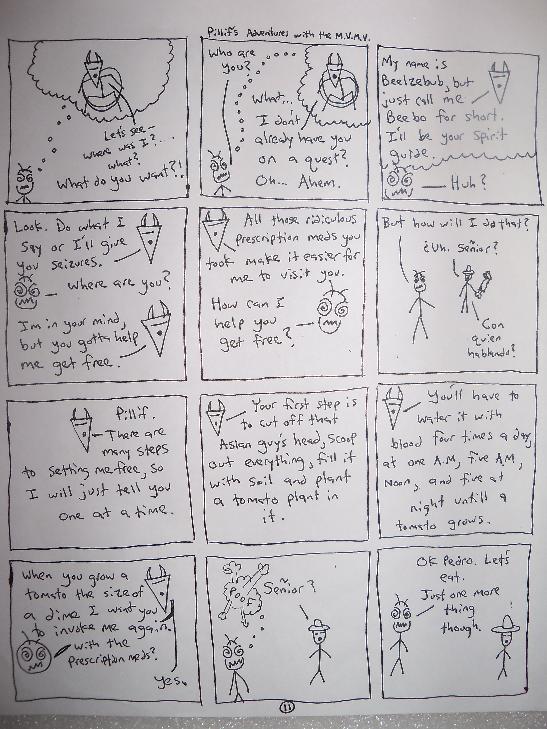 Pillif's Adventures with the M.V.M.V.
Let's see-
where was I?....
what?
What do you want?!!
Who are
you?
What...
I don't
already have you
on a quest?
Oh... Ahem.
My name is
Beelzebub, but
just call me
Beebo for short.
I'll be your Spirit
guide.
Huh?
Look. Do what I
say or I'll give
you seizures.
where are you?
I'm in your mind,
but you gotta help
me get free.
All those ridiculous
prescription meds you
took make it easier for
me to visit you.
How can I
help you
get free?
But how will I do that?
¿Uh. Señor?
Con
quien
hablando?
Pillif.
There are
many steps
to setting me free, so
I will just tell you
one at a time.
Your first step is
to cut off that
Asian guy's head, scoop
out everything, fill it
with soil and plant
a tomato plant in
it.
You'll have to
water it with
blood four times a day,
at one A.M, five AM,
Noon, and five at
night untill a
tomato grows.
When you grow a
tomato the size of
a dime I want you
to invoke me again.
with the
prescription meds?
Yes.
Señior?
OK Pedro. Let's
eat.
Just one more
thing
though.
11